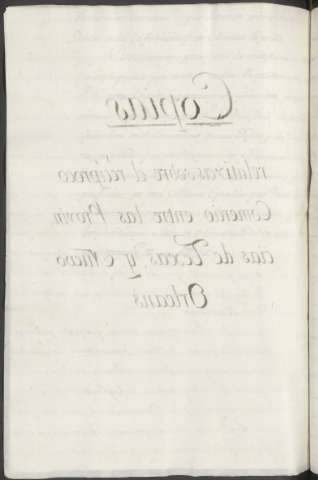 Copias
relativas sobre el reciproco
Comercio entre las Provin
cias de Texas, y Nuevo
Orleans